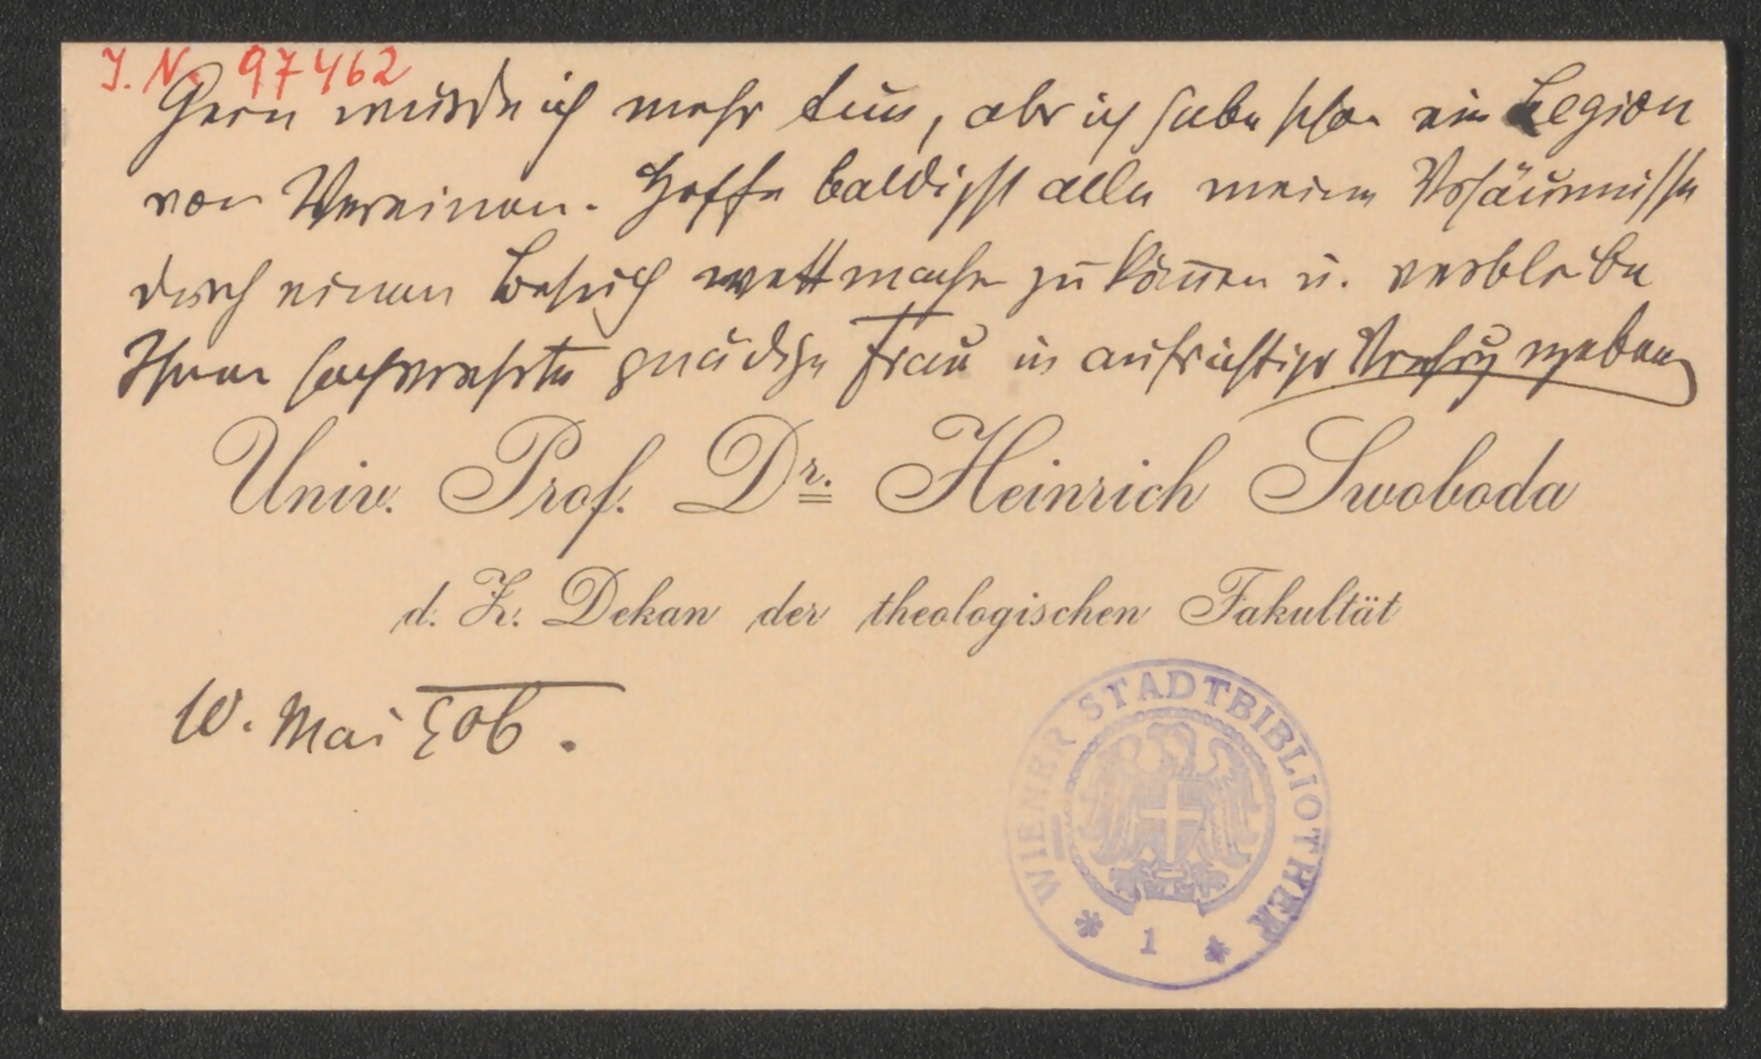 I. N. 97462
Gern würde ich mehr tun, aber ich habe schon ein Legion
von Vereinen. Hoffe baldigst alle meine Vrsäumnisse
durch einen Besuch wettmachen zu können u. verbleibe
Ihnen hochverehrte gnädige Frau in aufrichtiger Verehrg ergeben
Univ. Prof. Dr. Heinrich Swoboda
d. Z. Dekan der theologischen Fakultät
W. Mai 906.
WIENER STADTBIBLIOTHEK
* 1 *